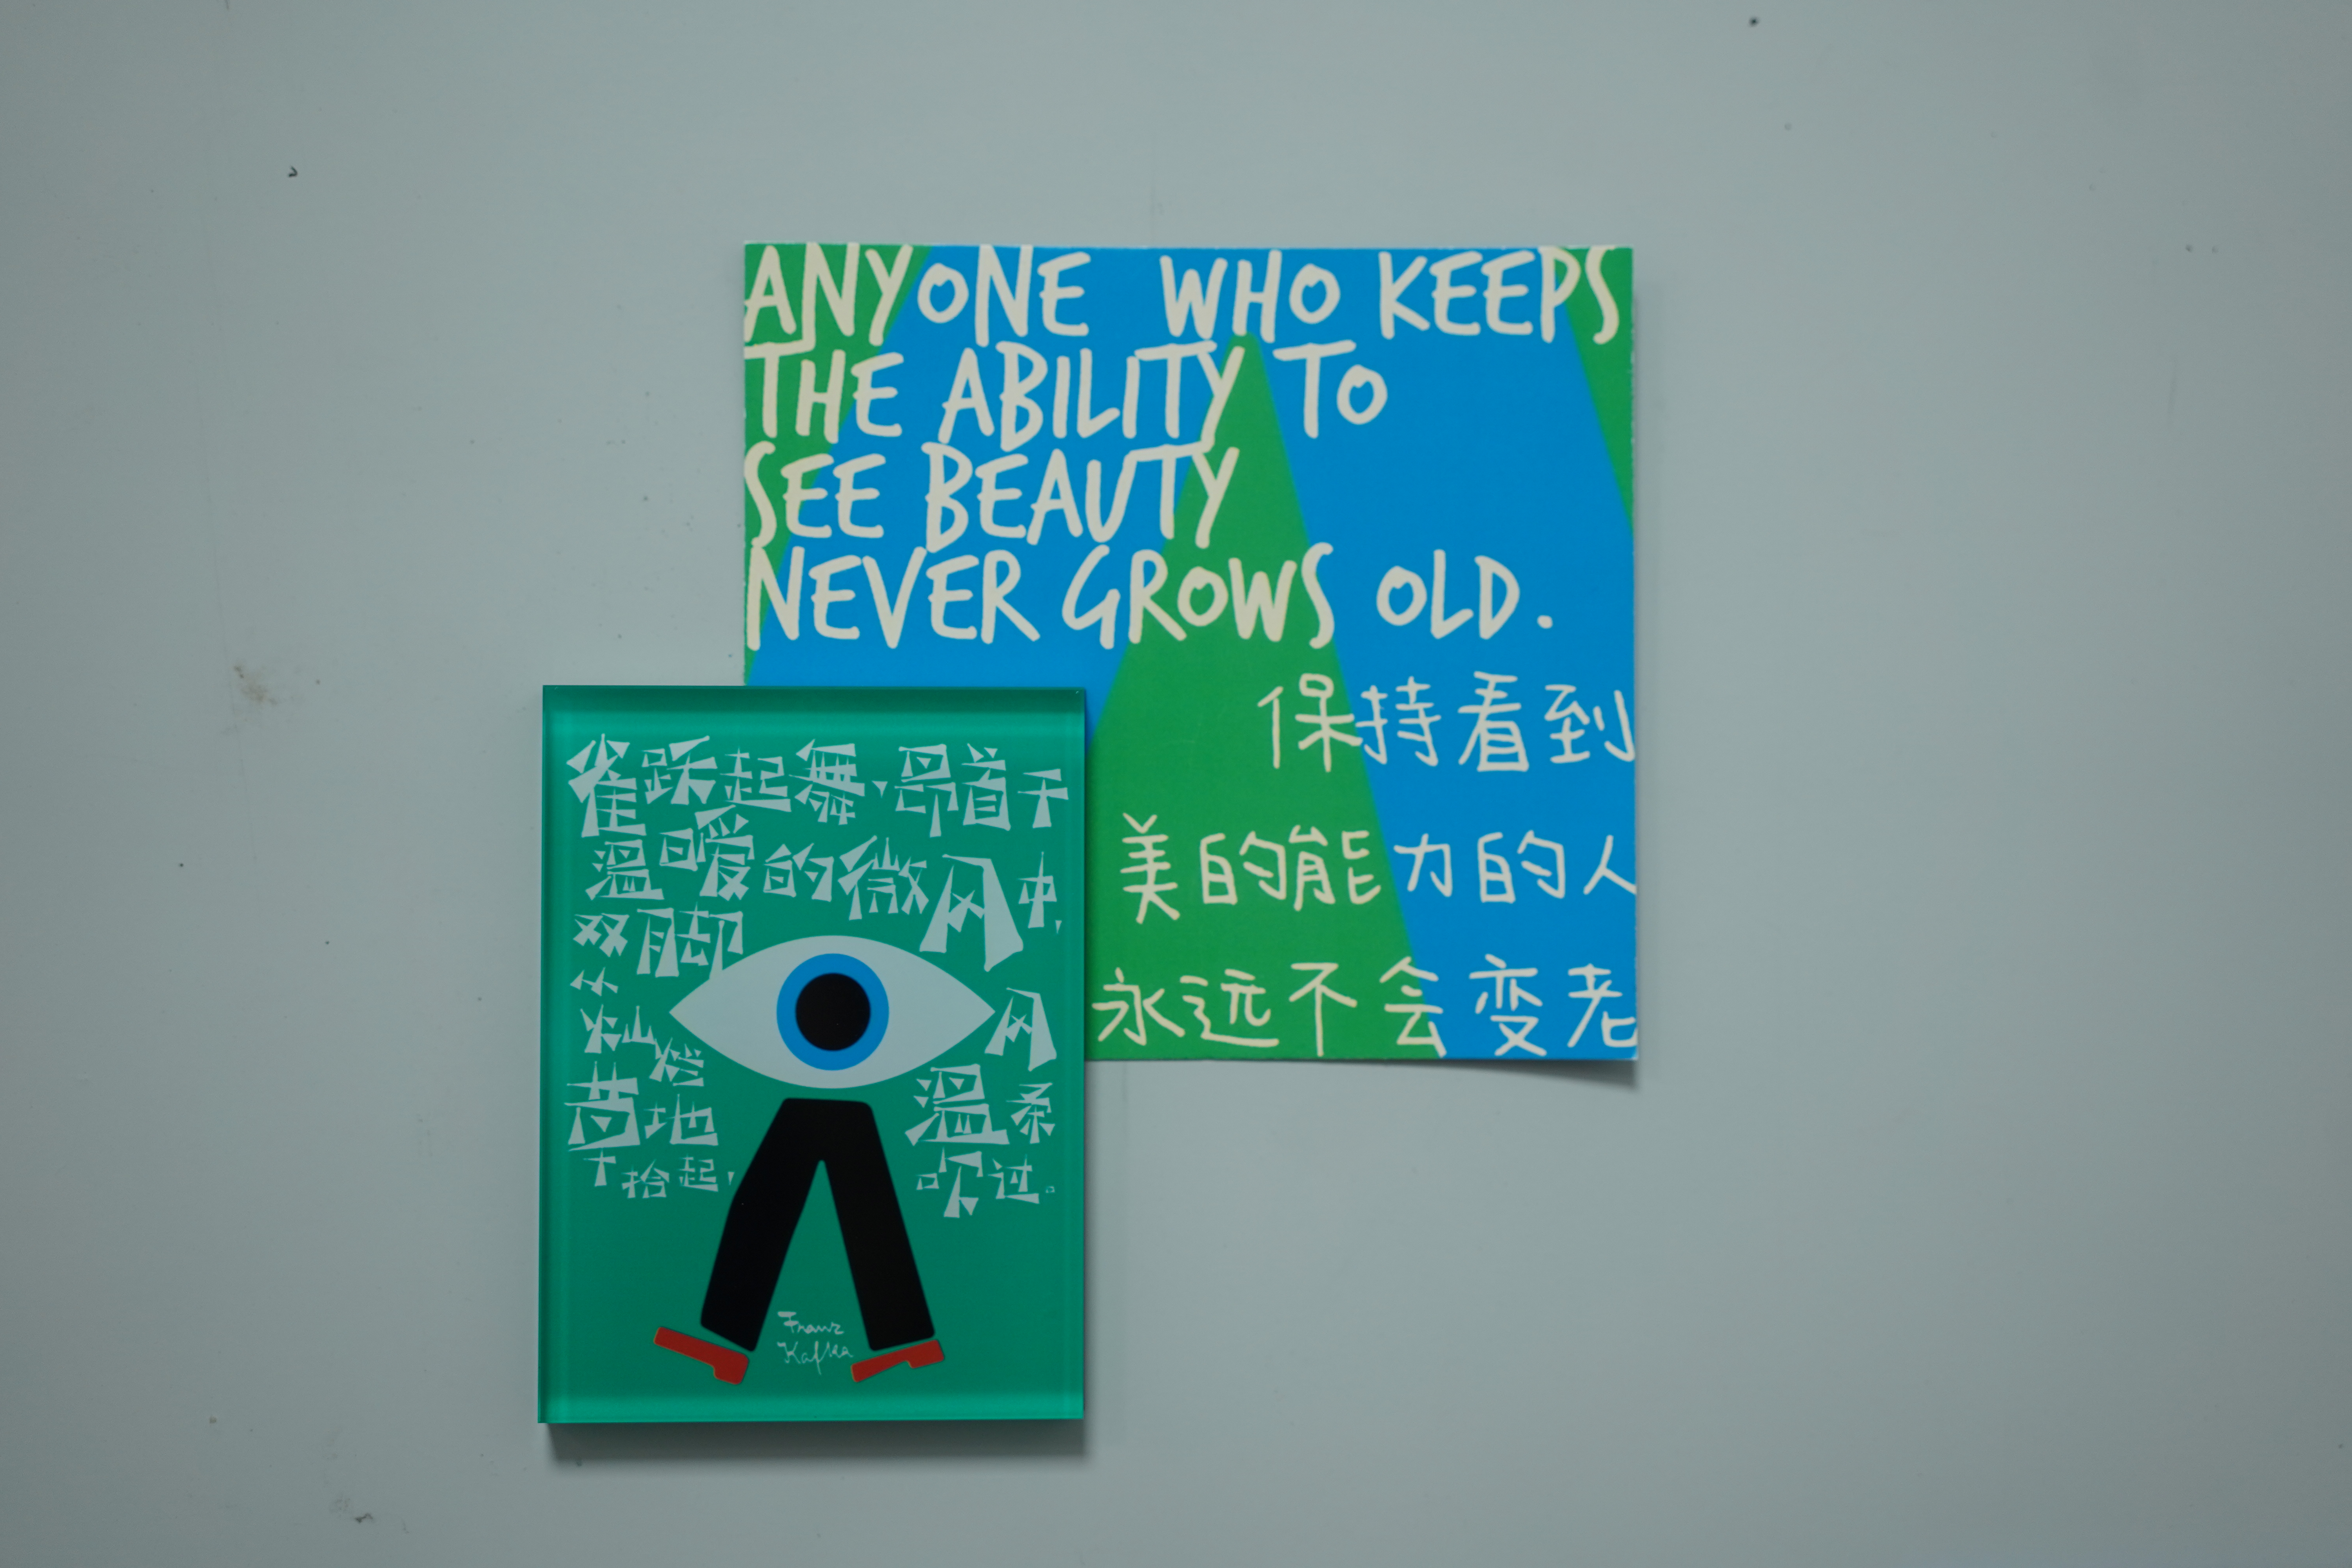 ANYONE WHO KEEPS
THE ABILITY TO
SEE BEAUTY
NEVER GROWS OLD.
保持看到
美的能力的人
永远不会变老
雀跃起舞,昂首于
溫暖的微风中,
双脚
从
灿烂
地
拾起,
风
溫柔
吹过。
Franz
Kafka